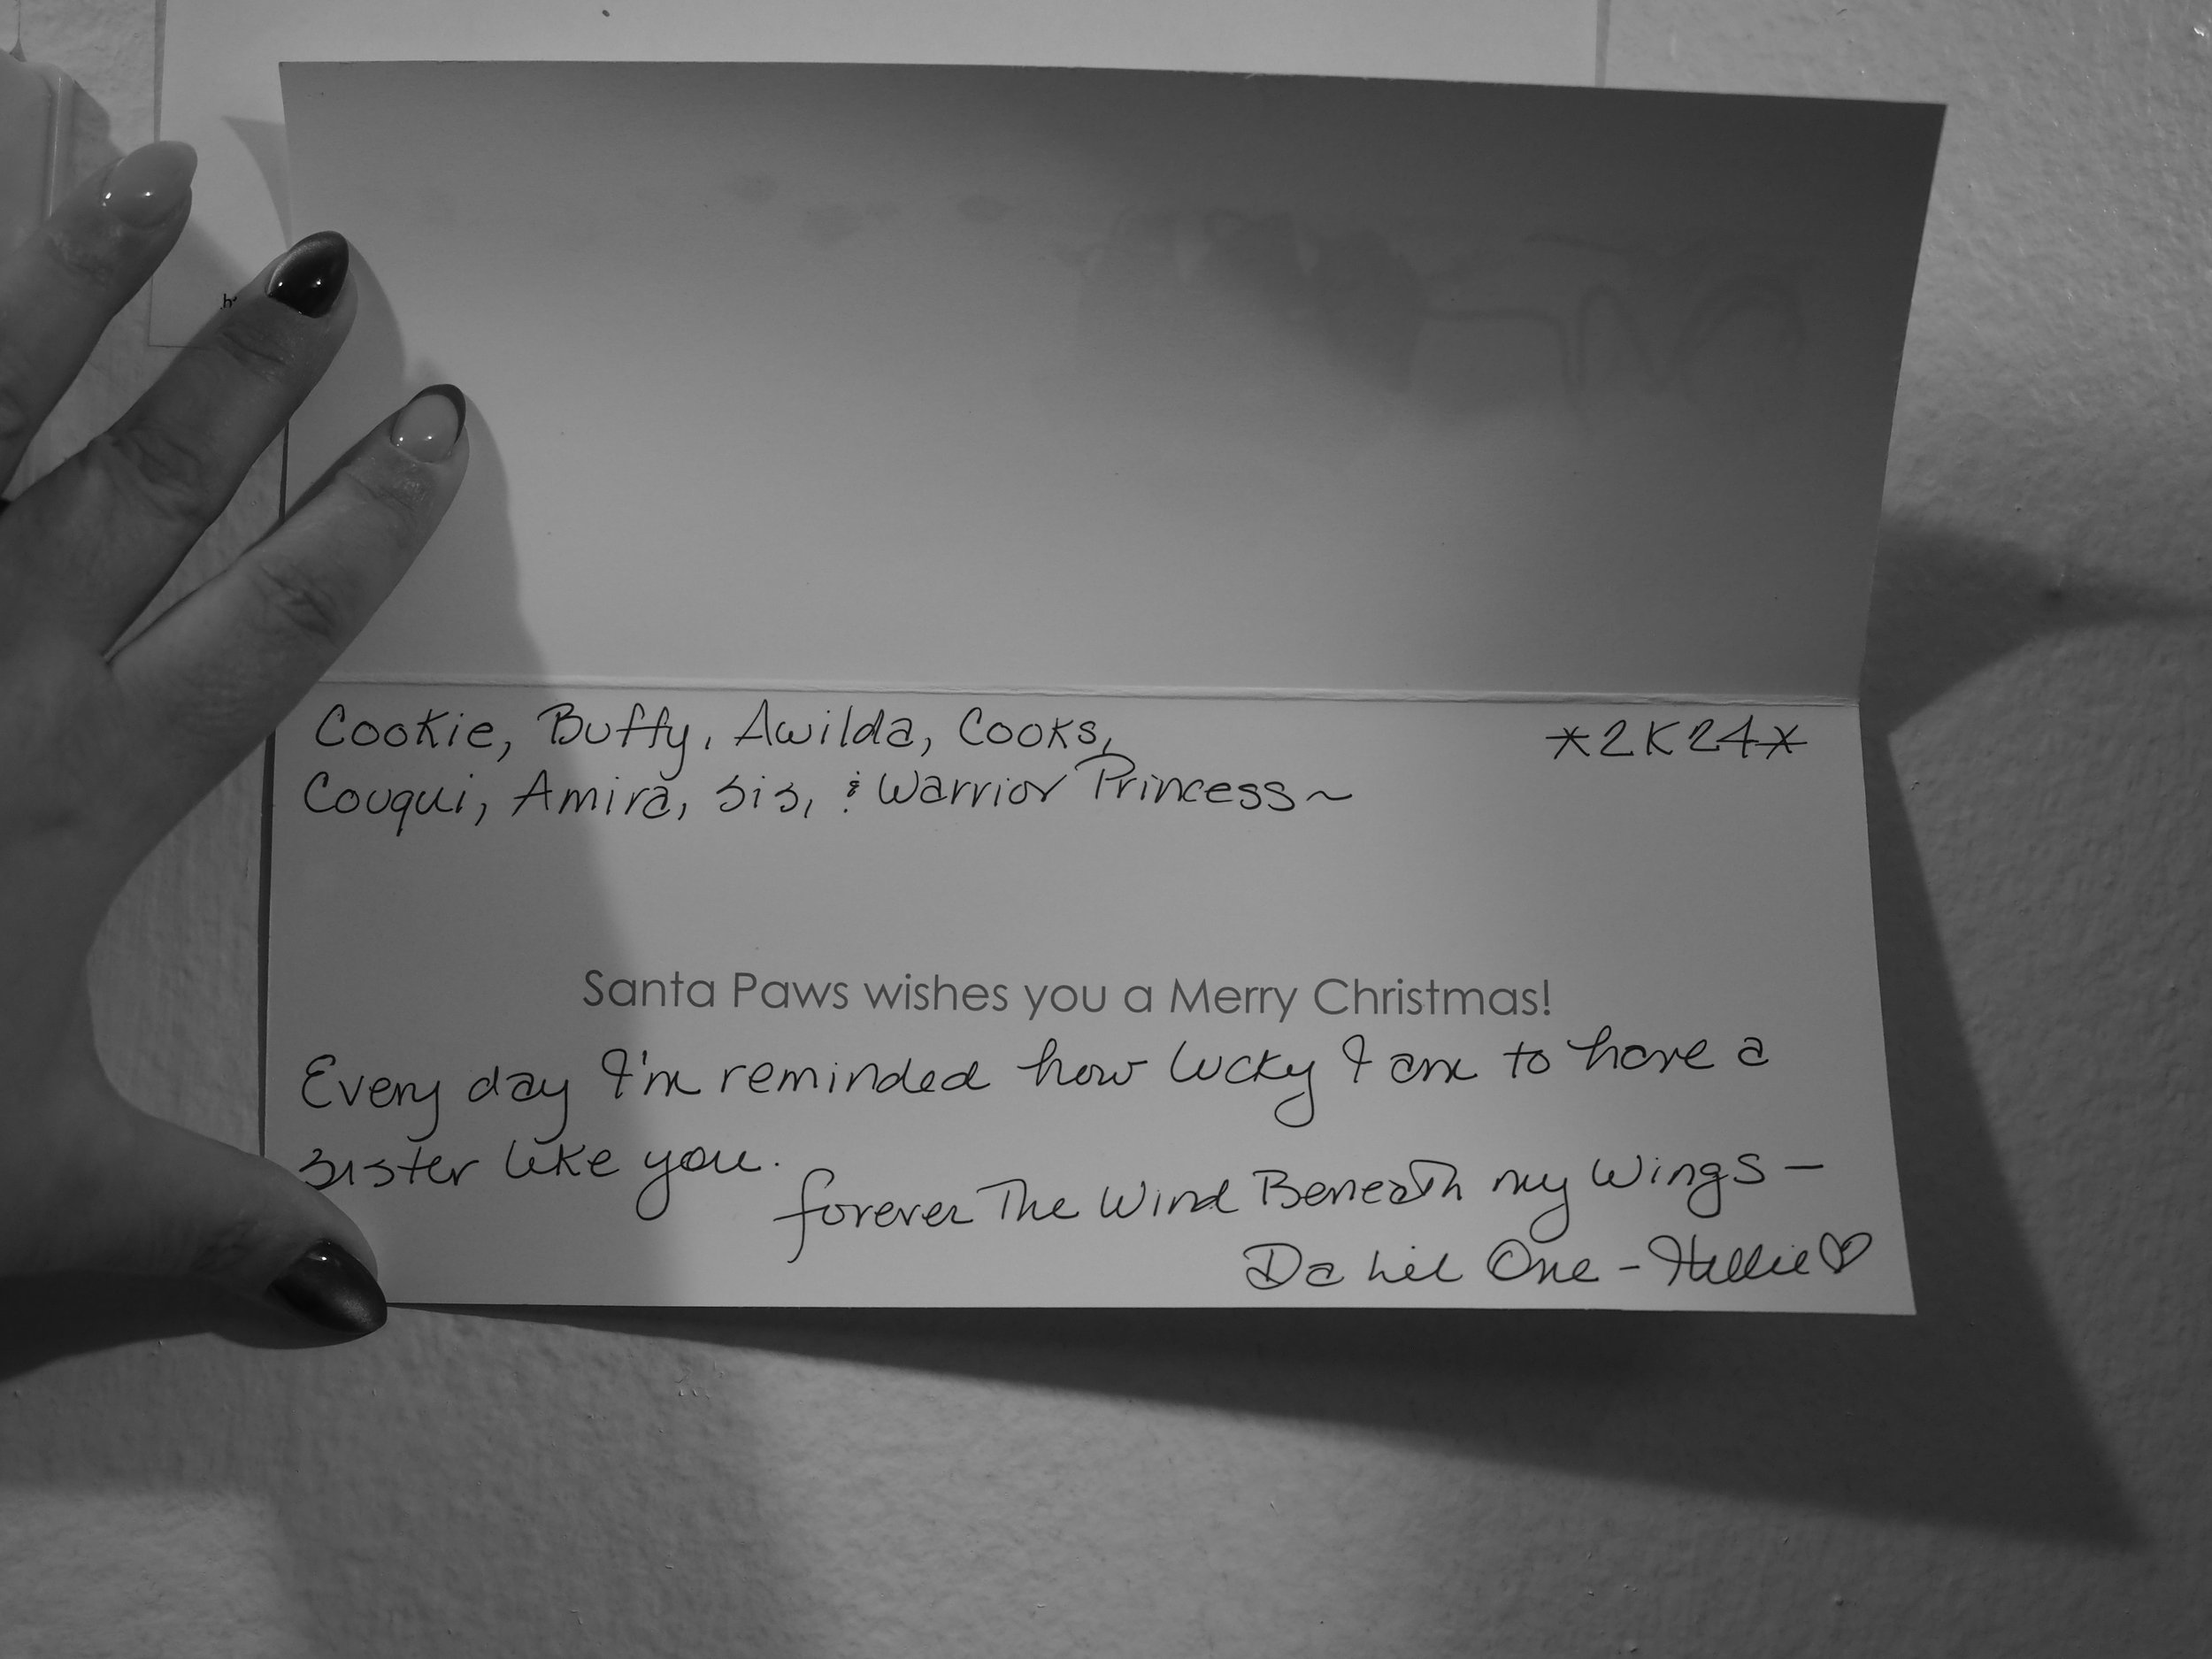 Cookie, Buffy, Awilda, Cooks,
*2K24*
Couqui, Amira, Sis, & Warrior Princess~
Santa Paws wishes you a Merry Christmas!
Every day I'm reminded how lucky I am to have a
sister like you.
forever The Wind Beneath my Wings –
Da Lil One – Hellie♡